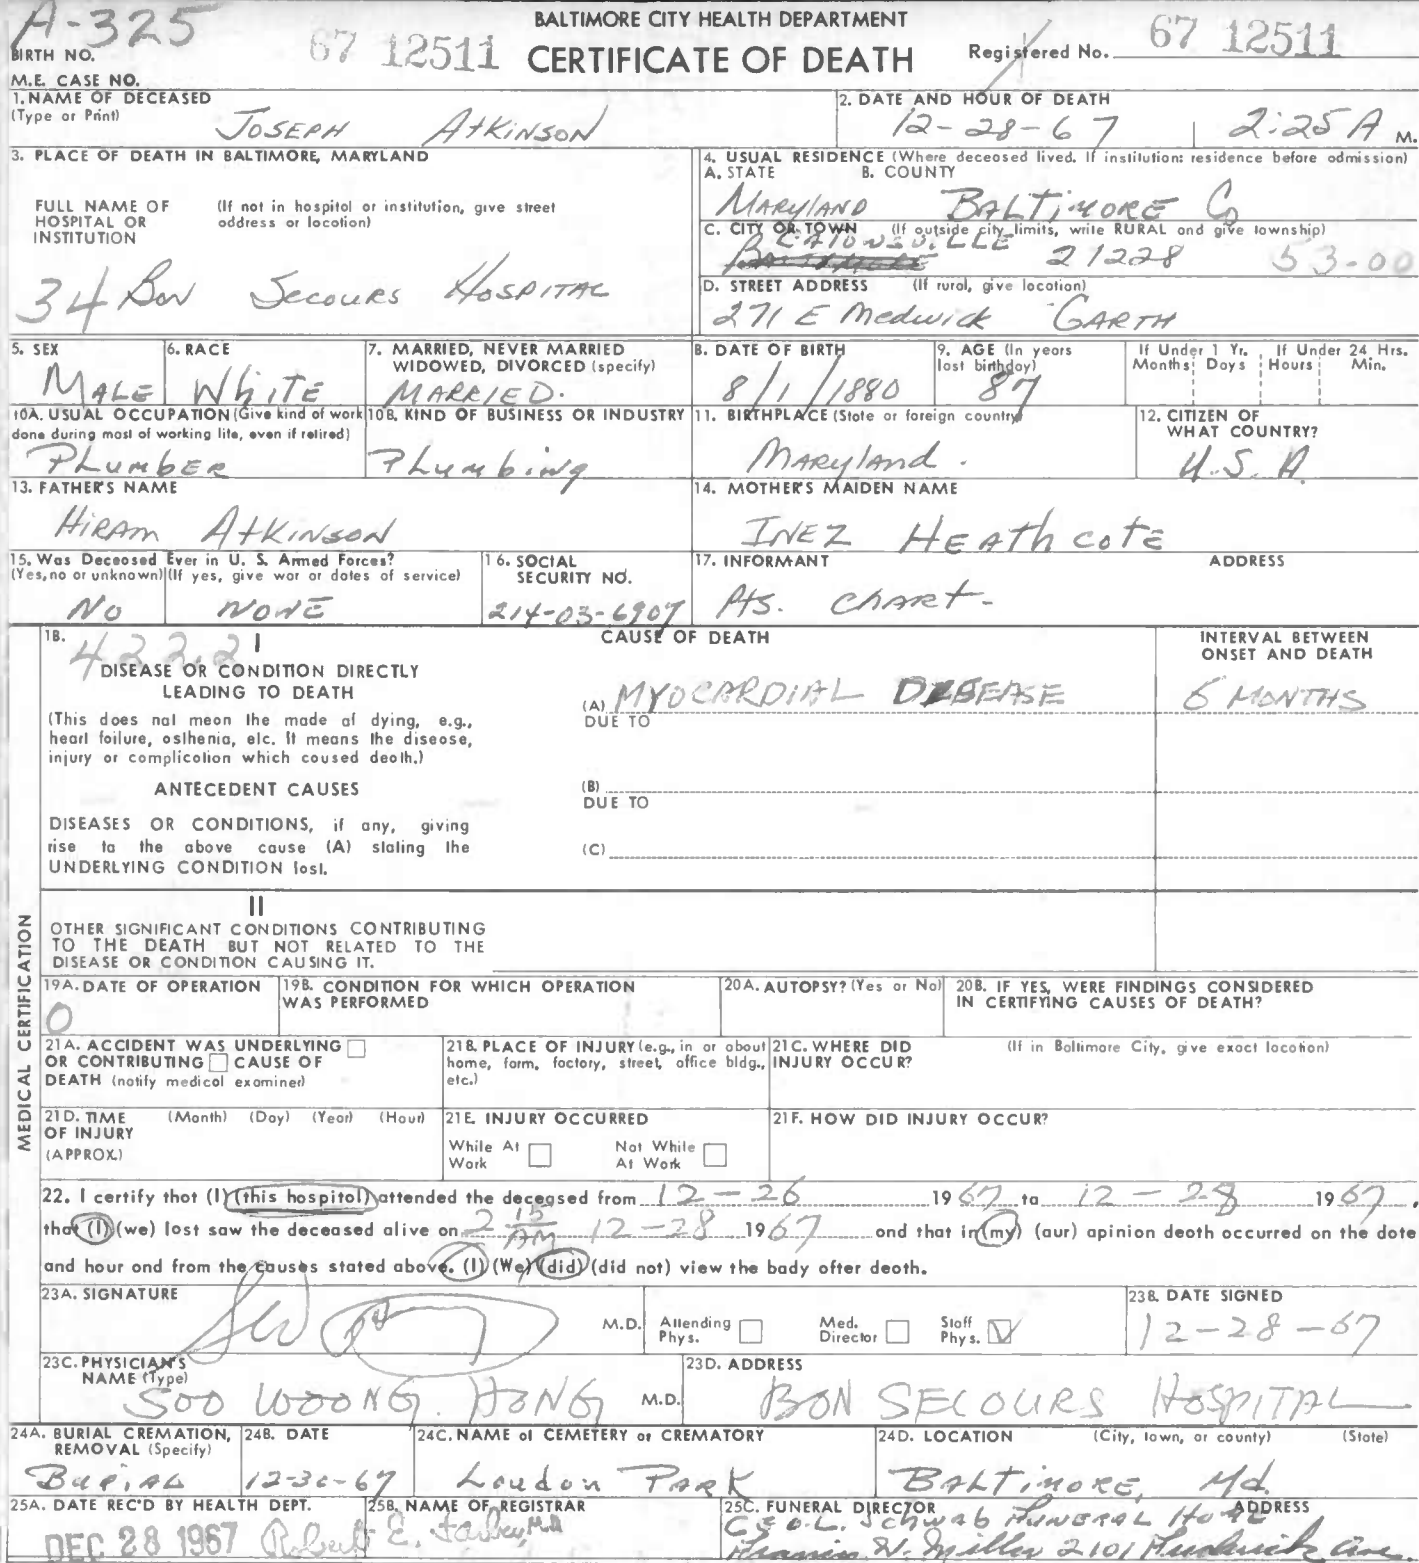 A-325
BALTIMORE CITY HEALTH DEPARTMENT
BIRTH NO. 67 12511 CERTIFICATE OF DEATH Registered No. 67 12511
M.E. CASE NO.
1. NAME OF DECEASED (Type or Print) JOSEPH ATKINSON
2. DATE AND HOUR OF DEATH 12-28-67 2:25 A M.
3. PLACE OF DEATH IN BALTIMORE, MARYLAND
FULL NAME OF HOSPITAL OR INSTITUTION (If not in hospital or institution, give street address or location)
34 Bon Secours Hospital
4. USUAL RESIDENCE (Where deceased lived. If institution: residence before admission)
A. STATE B. COUNTY
MARYLAND BALTIMORE Co
C. CITY OR TOWN (If outside city limits, write RURAL and give township)
CATONSVILLE 21228 53-00
D. STREET ADDRESS (If rural, give location)
271 E Medwick GARTH
5. SEX MALE
6. RACE White
7. MARRIED, NEVER MARRIED WIDOWED, DIVORCED (specify) MARRIED.
8. DATE OF BIRTH 8/1/1880
9. AGE (In years last birthday) 87
If Under 1 Yr. Months Days If Under 24 Hrs. Hours Min.
10A. USUAL OCCUPATION (Give kind of work done during most of working life, even if retired) PLumbER
10B. KIND OF BUSINESS OR INDUSTRY PLumbing
11. BIRTHPLACE (State or foreign country) MARYLAND.
12. CITIZEN OF WHAT COUNTRY? U.S.A.
13. FATHER'S NAME HIRAM ATKINSON
14. MOTHER'S MAIDEN NAME INEZ HEATHCOTE
15. Was Deceased Ever in U. S. Armed Forces? (Yes, no or unknown) (If yes, give war or dates of service) NO NONE
16. SOCIAL SECURITY NO. 214-03-6907
17. INFORMANT ADDRESS
Pts. chart-
18. 422.2 I
CAUSE OF DEATH
INTERVAL BETWEEN ONSET AND DEATH
DISEASE OR CONDITION DIRECTLY LEADING TO DEATH
(This does not mean the mode of dying, e.g., heart failure, asthenia, etc. It means the disease, injury or complication which caused death.)
(A) MYOCARDIAL DISEASE 6 MONTHS
DUE TO
ANTECEDENT CAUSES
(B)
DUE TO
DISEASES OR CONDITIONS, if any, giving rise to the above cause (A) stating the UNDERLYING CONDITION last.
(C)
II
OTHER SIGNIFICANT CONDITIONS CONTRIBUTING TO THE DEATH BUT NOT RELATED TO THE DISEASE OR CONDITION CAUSING IT.
MEDICAL CERTIFICATION
19A. DATE OF OPERATION 0
19B. CONDITION FOR WHICH OPERATION WAS PERFORMED
20A. AUTOPSY? (Yes or No)
20B. IF YES, WERE FINDINGS CONSIDERED IN CERTIFYING CAUSES OF DEATH?
21A. ACCIDENT WAS UNDERLYING OR CONTRIBUTING CAUSE OF DEATH (notify medical examiner)
21B. PLACE OF INJURY (e.g., in or about home, farm, factory, street, office bldg., etc.)
21C. WHERE DID INJURY OCCUR? (If in Baltimore City, give exact location)
21D. TIME OF INJURY (APPROX.) (Month) (Day) (Year) (Hour)
21E. INJURY OCCURRED While At Work Not While At Work
21F. HOW DID INJURY OCCUR?
22. I certify that (I) (this hospital) attended the deceased from 12-26 1967 to 12-28 1967,
that (I) (we) last saw the deceased alive on 2 15 AM 12-28 1967 and that in (my) (our) opinion death occurred on the date
and hour and from the causes stated above. (I) (We) (did) (did not) view the body after death.
23A. SIGNATURE M.D. Attending Phys. Med. Director Staff Phys.
23B. DATE SIGNED 12-28-67
23C. PHYSICIAN'S NAME (Type) SOO WOONG HONG M.D.
23D. ADDRESS BON SECOURS HOSPITAL
24A. BURIAL CREMATION, REMOVAL (Specify) BURIAL
24B. DATE 12-30-67
24C. NAME of CEMETERY or CREMATORY Loudon PARK
24D. LOCATION (City, town, or county) (State) BALTIMORE, Md.
25A. DATE REC'D BY HEALTH DEPT. DEC 28 1967
25B. NAME OF REGISTRAR Robert E. Farber, M.D.
25C. FUNERAL DIRECTOR ADDRESS
C & O.L. Schwab FUNERAL HOME
Francis W. Miller 2101 Frederick Ave